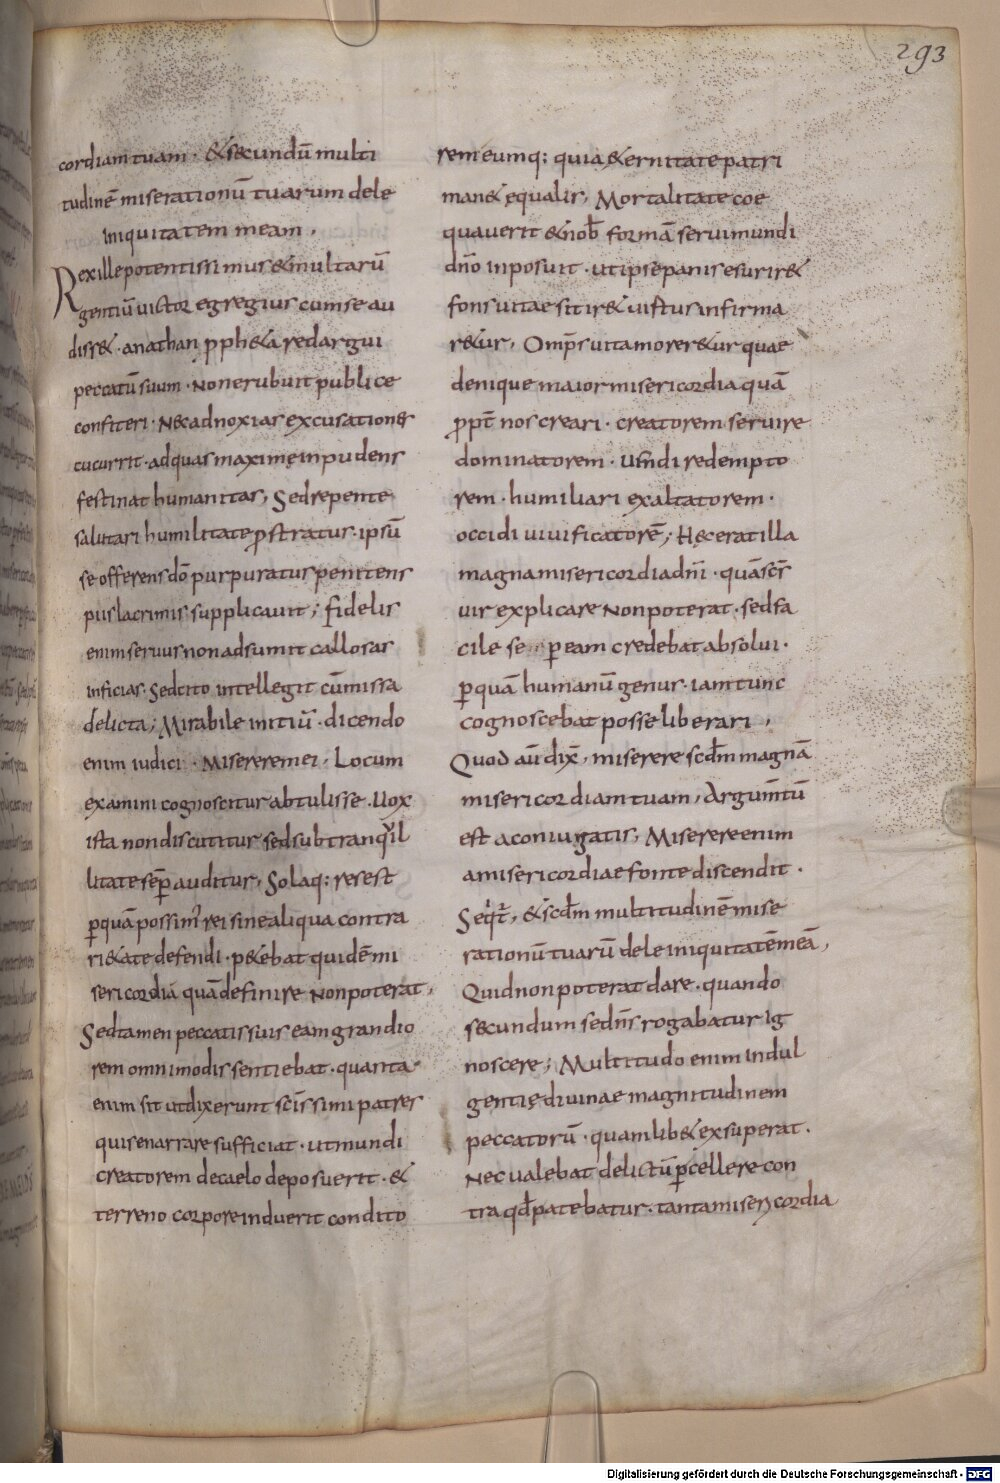 293
cordiam tuam · & secundū multi
tudinē miserationū tuarum dele
iniquitatem meam ,
Rex ille potentissimus & multarū
gentiū uictor egregius cum se au
diss& · a nathan pph&a redargui
peccatū suum · Non erubuit publice
confiteri · Nec ad noxias excusationes
cucurrit · ad quas maxime inpudens
festinat humanitas , Sed repente
salutari humilitate pstratus · ipsū
se offerens dō purpuratus penitens
piis lacrimis supplicauit ; fidelis
enim seruus non adsumit callosas
inficias · Sed cito intellegit cūmissa
delicta ; Mirabile initiū · dicendo
enim iudici · Miserere mei , Locum
examini cognoscitur abtulisse · Uox
ista non discutitur sed sub tranqil
litate sēp auditur , Sola q: res est
p quā possim' rei sine aliqua contra
ri&ate defendi · p&ebat quidē mi
sericordiā quā definire non poterat ,
Sed tamen peccatis suis eam grandio
rem omnimodis sentiebat · quanta
enim sit ut dixerunt scīssimi patres
quis enarrare sufficiat · ut mundi
creatorem de caelo deposuerit · &
terreno corpore induerit condito
rem eumq: quia &ernitate patri
man& ęqualis , Mortalitate coe
quauerit & nob formā serui mundi
dno inposuit · ut ipse panis esurir&
fons uitae sitir& uirtus infirma
r&ur , Omps uita morer&ur quae
denique maior misericordia quā
ppt nos creari · creatorem seruire
dominatorem · uendi redempto
rem · humiliari exaltatorem ·
occidi uiuificatorē ; Hęc erat illa
magna misericordia dni · quā scs
uir explicare non poterat · sed fa
cile se p eam credebat absolui ·
p quā humanū genus · iam tunc
cognoscebat posse liberari ,
Quod aū dix , miserere scdm magnā
misericordiam tuam , Argumtū
est a coniugatis , Miserere enim
a misericordiae fonte discendit ·
Seqt , & scdm multitudinē mise
rationū tuarū dele iniquitatē meā ,
Quid non poterat dare · quando
secundum se dns rogabatur ig
noscere ; Multitudo enim indul
gentię diuinae magnitudinem
peccatorū · quamlib& exsuperat ·
Nec ualebat delictū pcellere con
tra qd patebatur · tanta misericordia
Digitalisierung gefördert durch die Deutsche Forschungsgemeinschaft - DFG